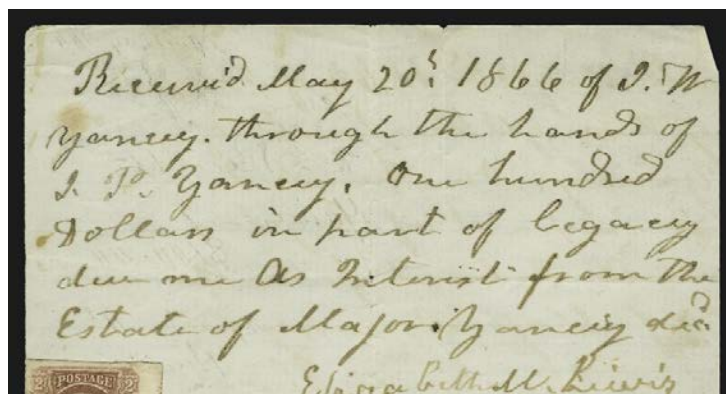 Receiv'd May 20th 1866 of J. W
Yancey. through the hands of
J. P. Yancey. One hundred
Dollars in part of legacy
due me As Interist from the
Estate of Major Yancey decd
Elizabeth M.
2 POSTAGE 2